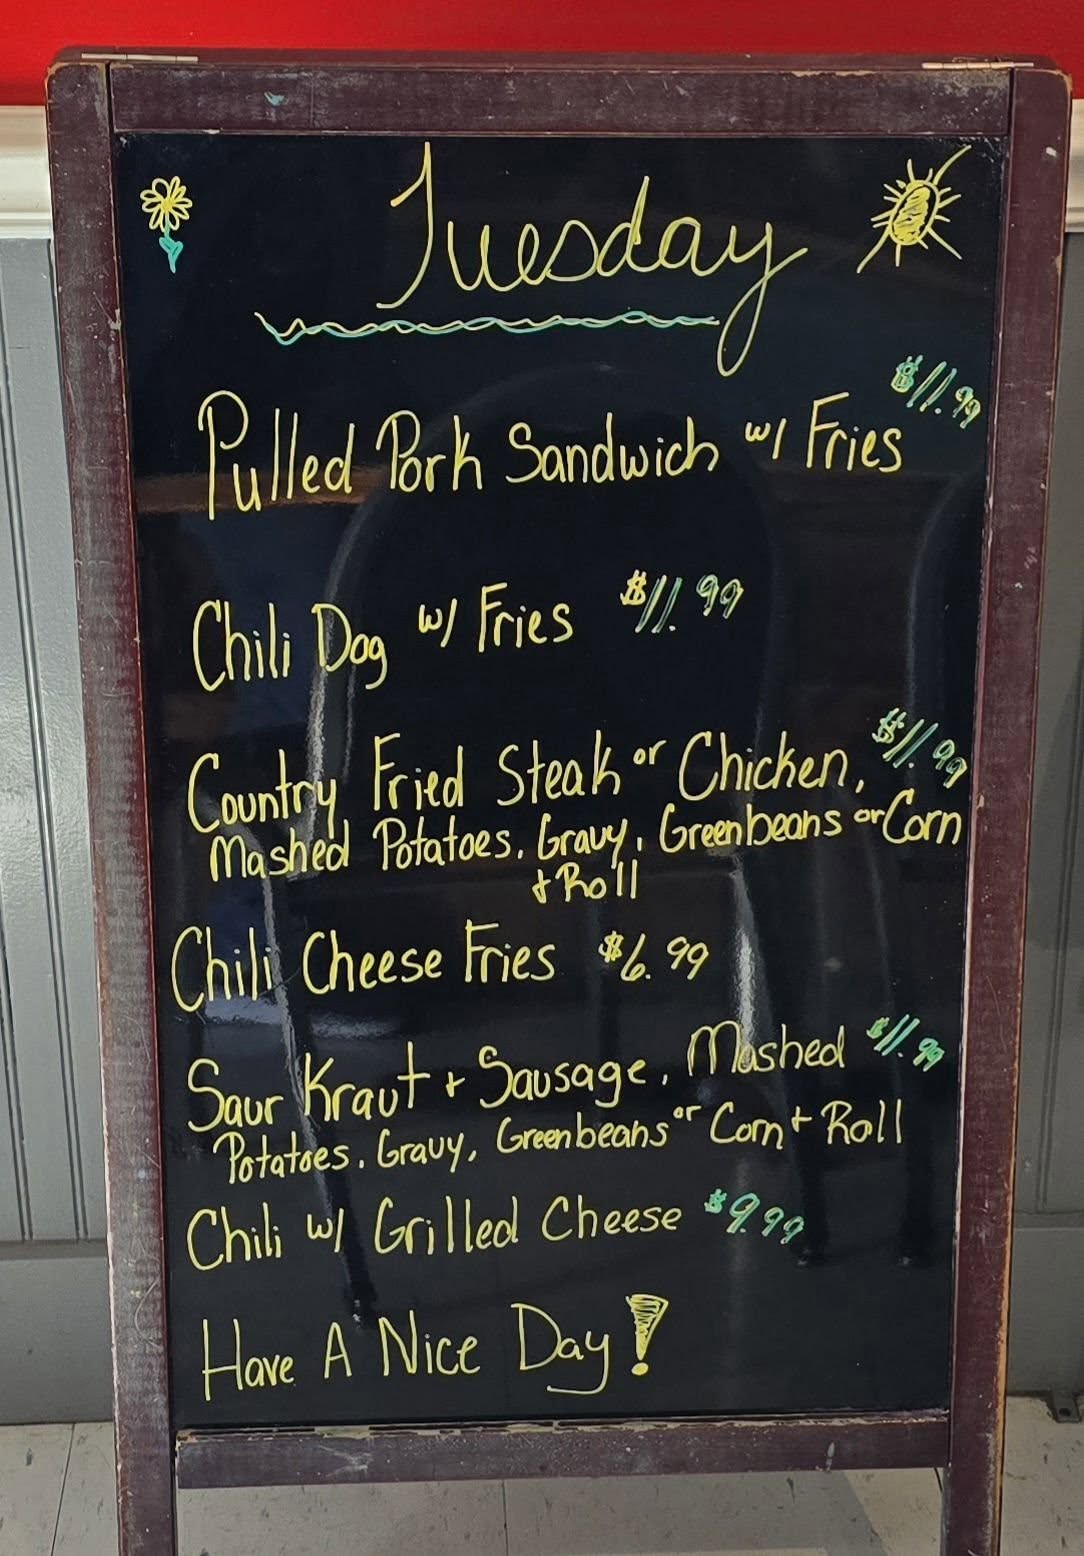 Tuesday
$11.99
Pulled Pork Sandwich w/ Fries
Chili Dog w/ Fries $11.99
Country Fried Steak or Chicken, $11.99
Mashed Potatoes, Gravy, Greenbeans or Corn
+ Roll
Chili Cheese Fries $6.99
Saur Kraut + Sausage, Mashed $11.99
Potatoes, Gravy, Greenbeans or Corn + Roll
Chili w/ Grilled Cheese $9.99
Have A Nice Day!